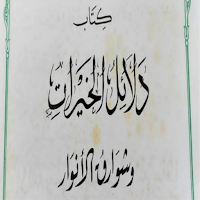 كِتَاب
دَلَائِلُ الْخَيْرَاتِ
وشوارق الأنوار